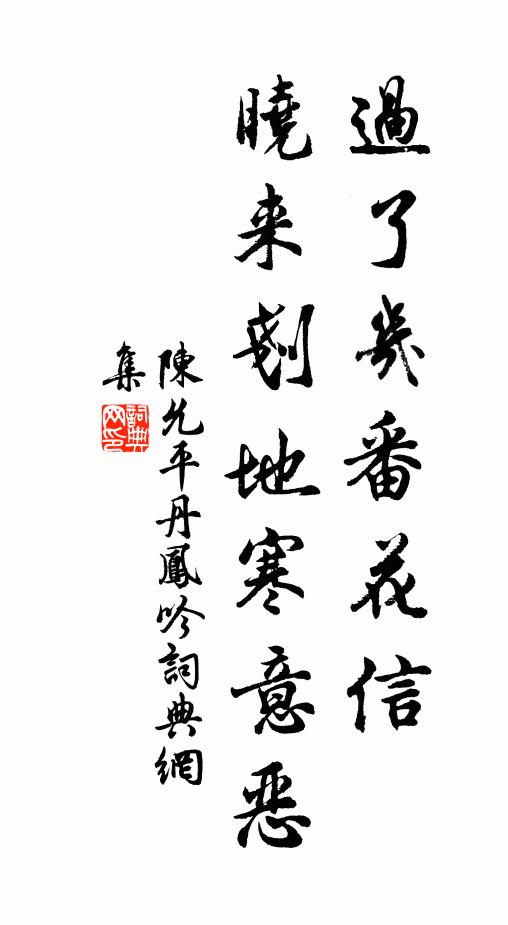 過了幾番花信
曉来剗地寒意恶
陳允平丹鳳吟詞典網
集
詞典网印